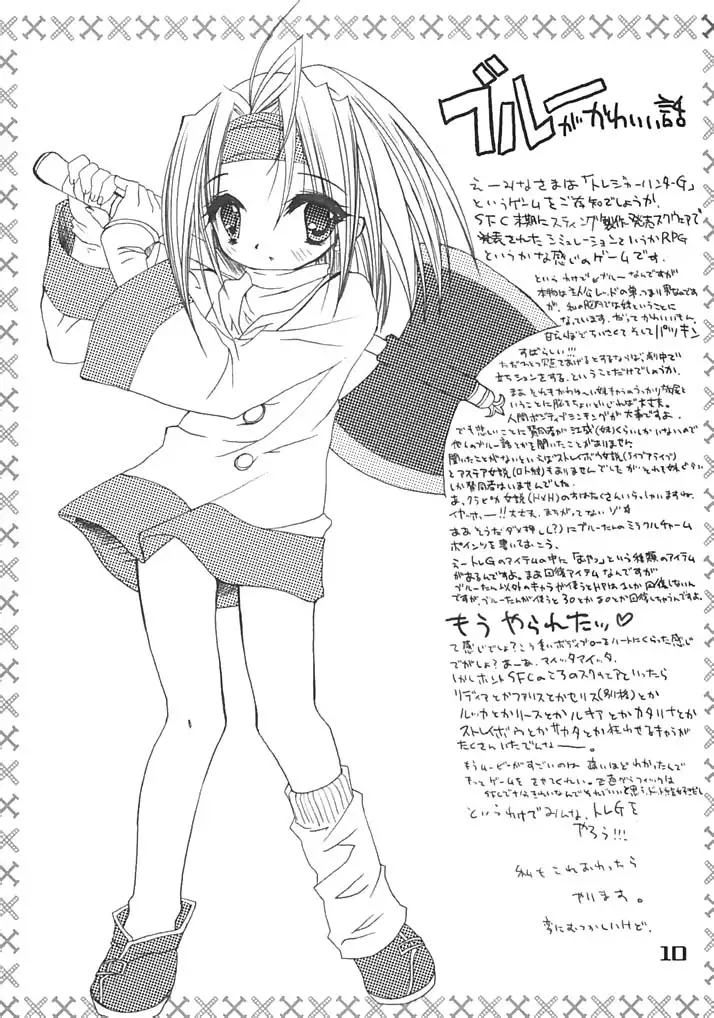 ブルーがかわいい話
えーみなさまは「トレジャーハンターG」
というゲームをご存知でしょうか。
SFC末期にスティング製作発売スクウェアで
発表されたシミュレーションというかRPG
というかな感じのゲームです。
というわけでブルーなんですが
本物は主人公レッドの弟、つまり男なんです
が、私の脳内では妹ということに
なっています。だってかわいいもん。
ちいさくてそしてパツキン
すばらしい!!!
ということだけでしょうか。
人間ポジティブシンキングが大事ですよ。
でも悲しいことに賛同者が江成(妹)くらいしかいないので
他しのブルー話とかを聞いたことがありません
聞いたことがないといえばストレイボウ女説(ライブアライブ)
とアステア女説
もありませんでしたが
しか賛同者はいませんでした。
あ、クラピカ女説(H×H)の方はたくさんいらっしゃいますね。
イヤッホー!!大丈夫、まちがってないゾ
ああそうだダメ押し(?)にブルーたんのミラクルチャーム
ポインツを書いておこう。
えートレGのアイテムの中に「おやつ」という種類のアイテム
があるんですよ。まあ回復アイテムなんですが
ブルーたん以外のキャラが使うとHPは1しか回復しないん
ですが、ブルーたんが使うと30とか40とか回復しちゃうんですよ。
もうやられたッ♡
て感じでしょ?こう重いボディブローをハートにくらった感じ
でがしょ?あーあ、アイッタアイッタ。
しかしホントSFCのころのスクウェアといったら
リディアとかファリスとかセリス(別格)とか
ルッカとかリースとかルキアとかカタリナとか
ストレイボウとかサカタとか狂わせるキャラが
たくさんいたでんなー。
もうムービーがすごいのは痛いほどわかったんで
もっとゲームをさせてくれい。
というわけでみんな、トレGを
やろう!!!
私もこれおわったら
やります。
変にむつかしいけど。
10